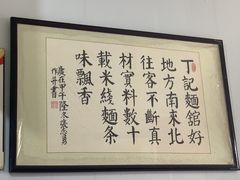 丁記麵舘好
地方南来北
往客不斷真
材實料數十
載米綫麵条
味飄香
歲在甲午隆冬張志勇
作并書